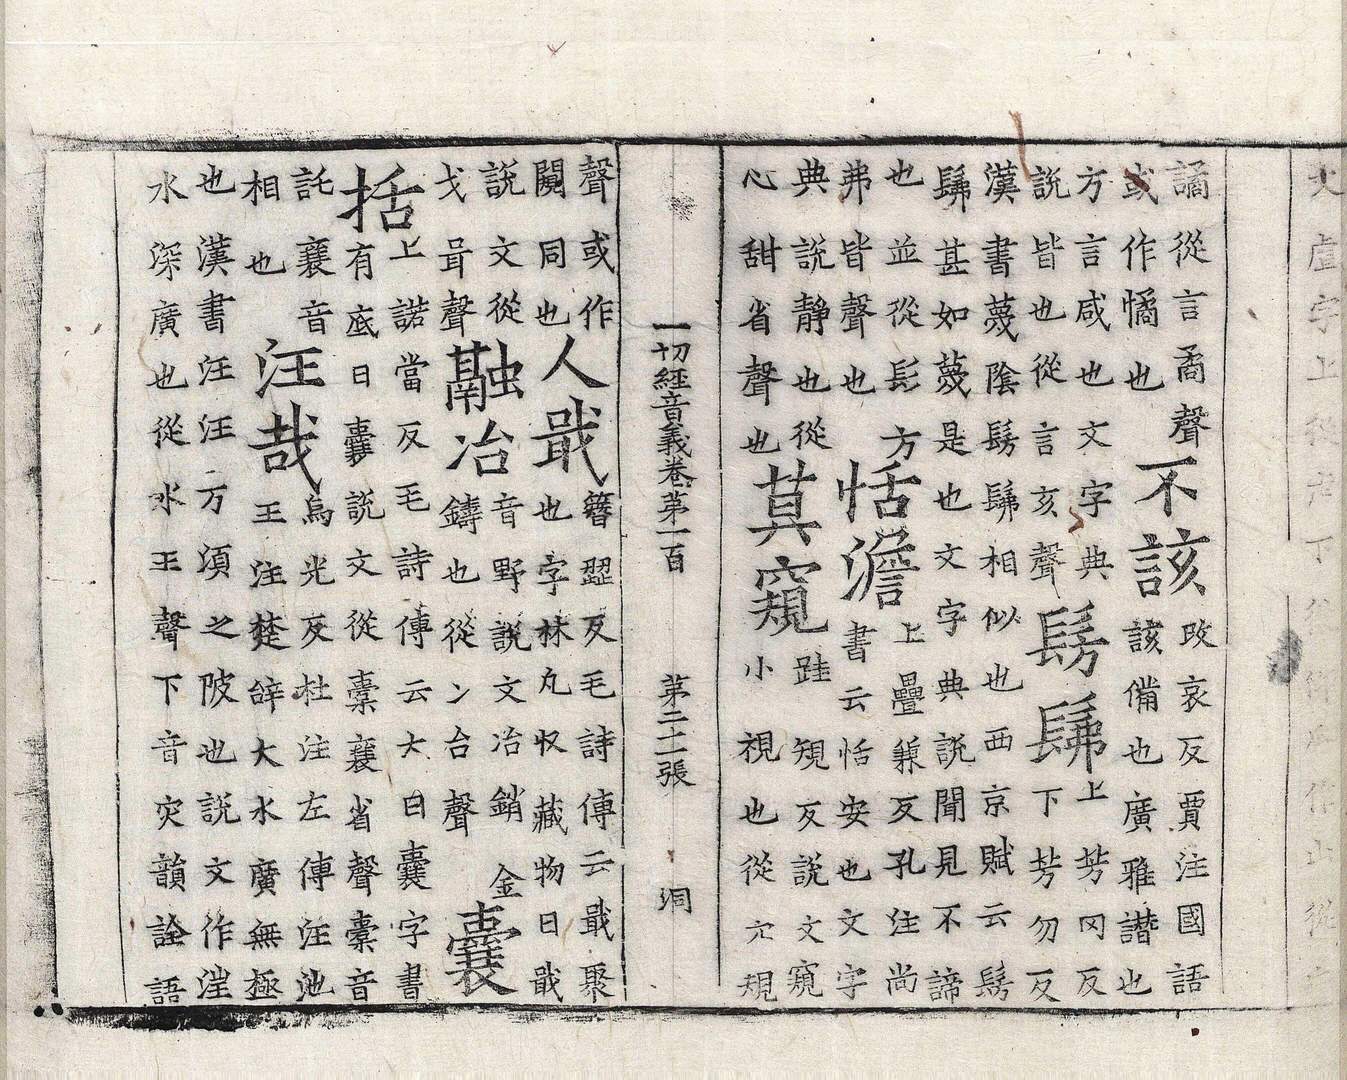 譎從言矞聲
或作憰也
不該
改哀反賈注國語
該備也廣雅譖也
方言咸也文字典
說皆也從言亥聲
髣髴
上芳罔反
下芳勿反
漢書蔑陰髣髴相似也西京賦云髣
髴甚如蔑是也文字典說聞見不諦
也並從髟方
弗皆聲也
恬澹
上疊兼反孔注尚
書云恬安也文字
典說靜也從
心甜省聲也
莫窺
跬規反說文窺
小視也從穴規
一切經音義卷第一百　第二十一張　洞
聲或作
闚同也
人戢
簪澀反毛詩傳云戢聚
也字林凡収藏物曰戢
說文從
戈咠聲
融冶
音野說文冶銷金
鑄也從冫台聲
囊
括
上諾當反毛詩傳云大曰囊字書
有底曰囊說文從㯻襄省聲㯻音
託襄音
相也
汪哉
烏光反杜注左傳汪池
王注楚辝大水廣無極
也漢書汪汪万頃之陂也說文作㴏
水深廣也從水王聲下音灾韻詮語